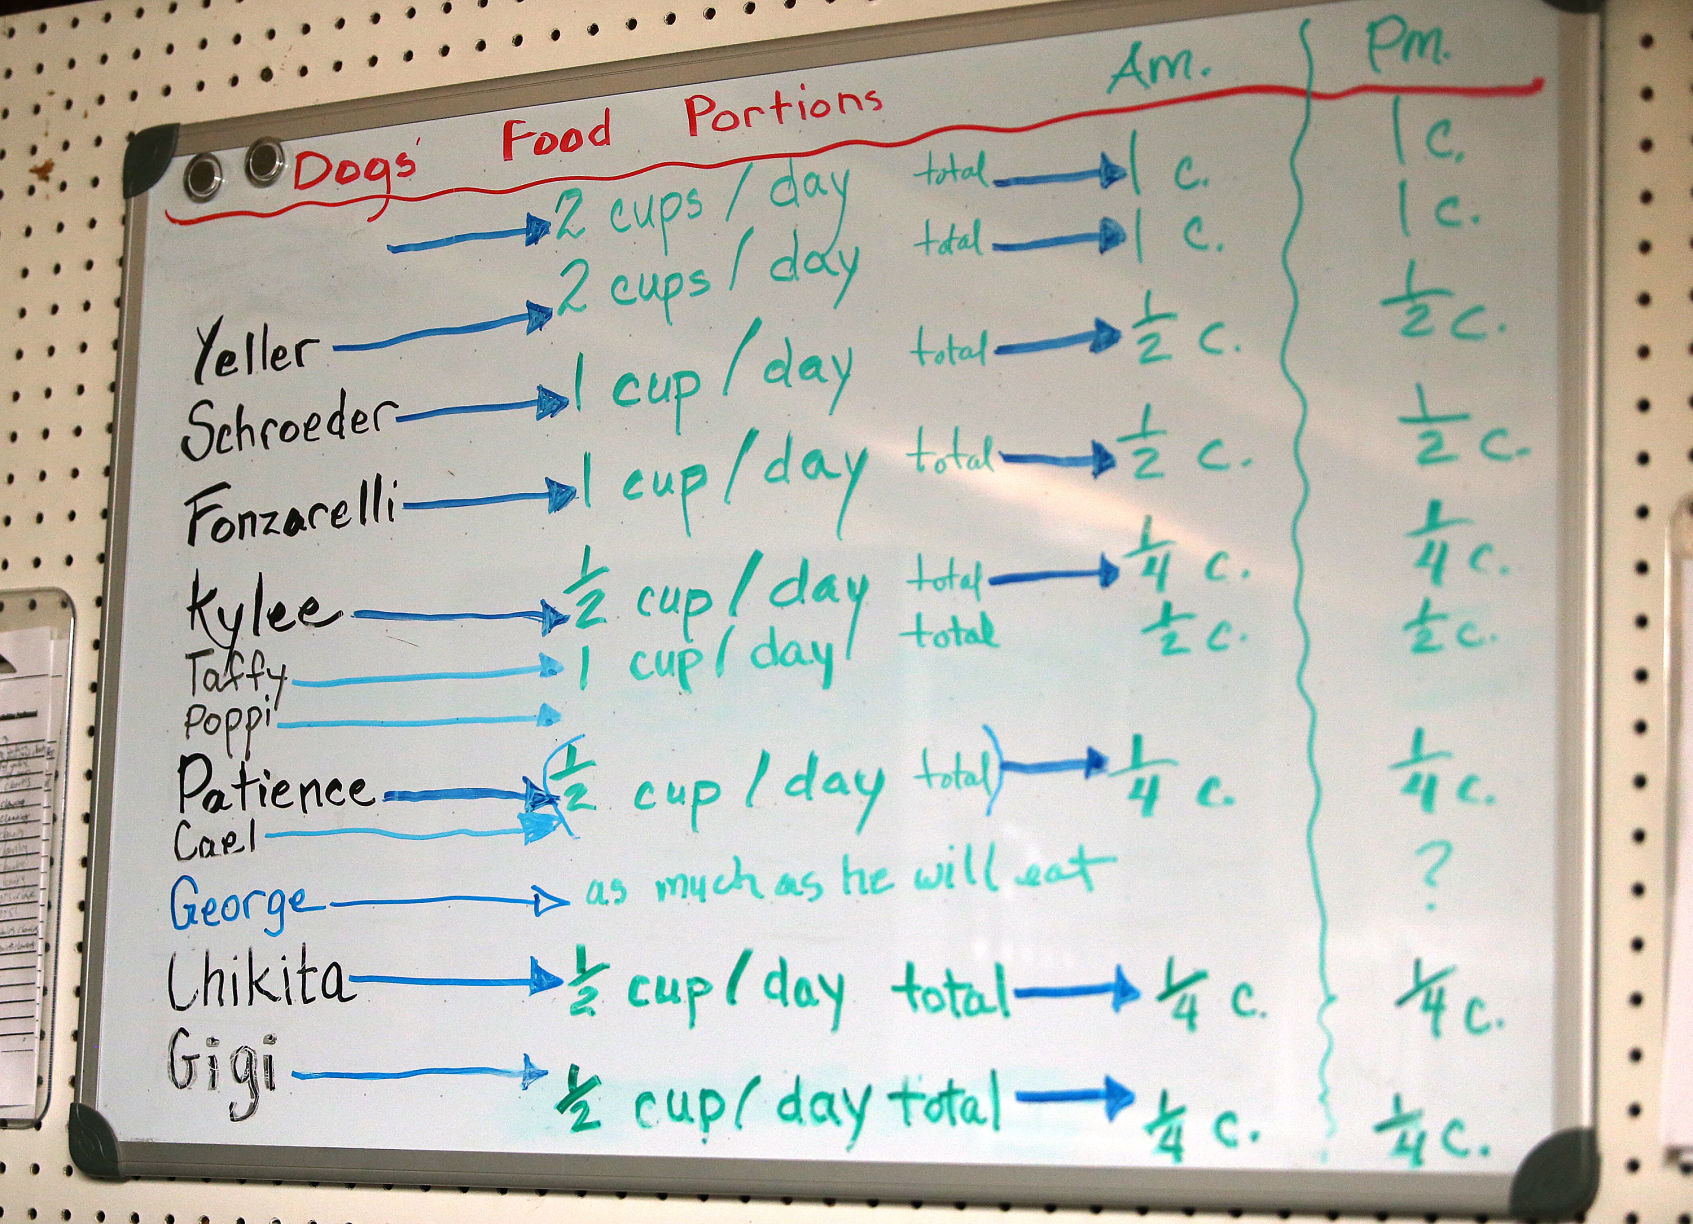 Am. Pm.
Dogs' Food Portions
2 cups / day total 1 c. 1 c.
Yeller 2 cups / day total 1 c. 1 c.
Schroeder 1 cup / day total 1/2 c. 1/2 c.
Fonzarelli 1 cup / day total 1/2 c. 1/2 c.
Kylee 1/2 cup / day total 1/4 c. 1/4 c.
Taffy 1 cup / day total 1/2 c. 1/2 c.
Poppi
Patience (1/2 cup / day total) 1/4 c. 1/4 c.
Cael
George as much as he will eat ?
Chikita 1/2 cup / day total 1/4 c. 1/4 c.
Gigi 1/2 cup / day total 1/4 c. 1/4 c.